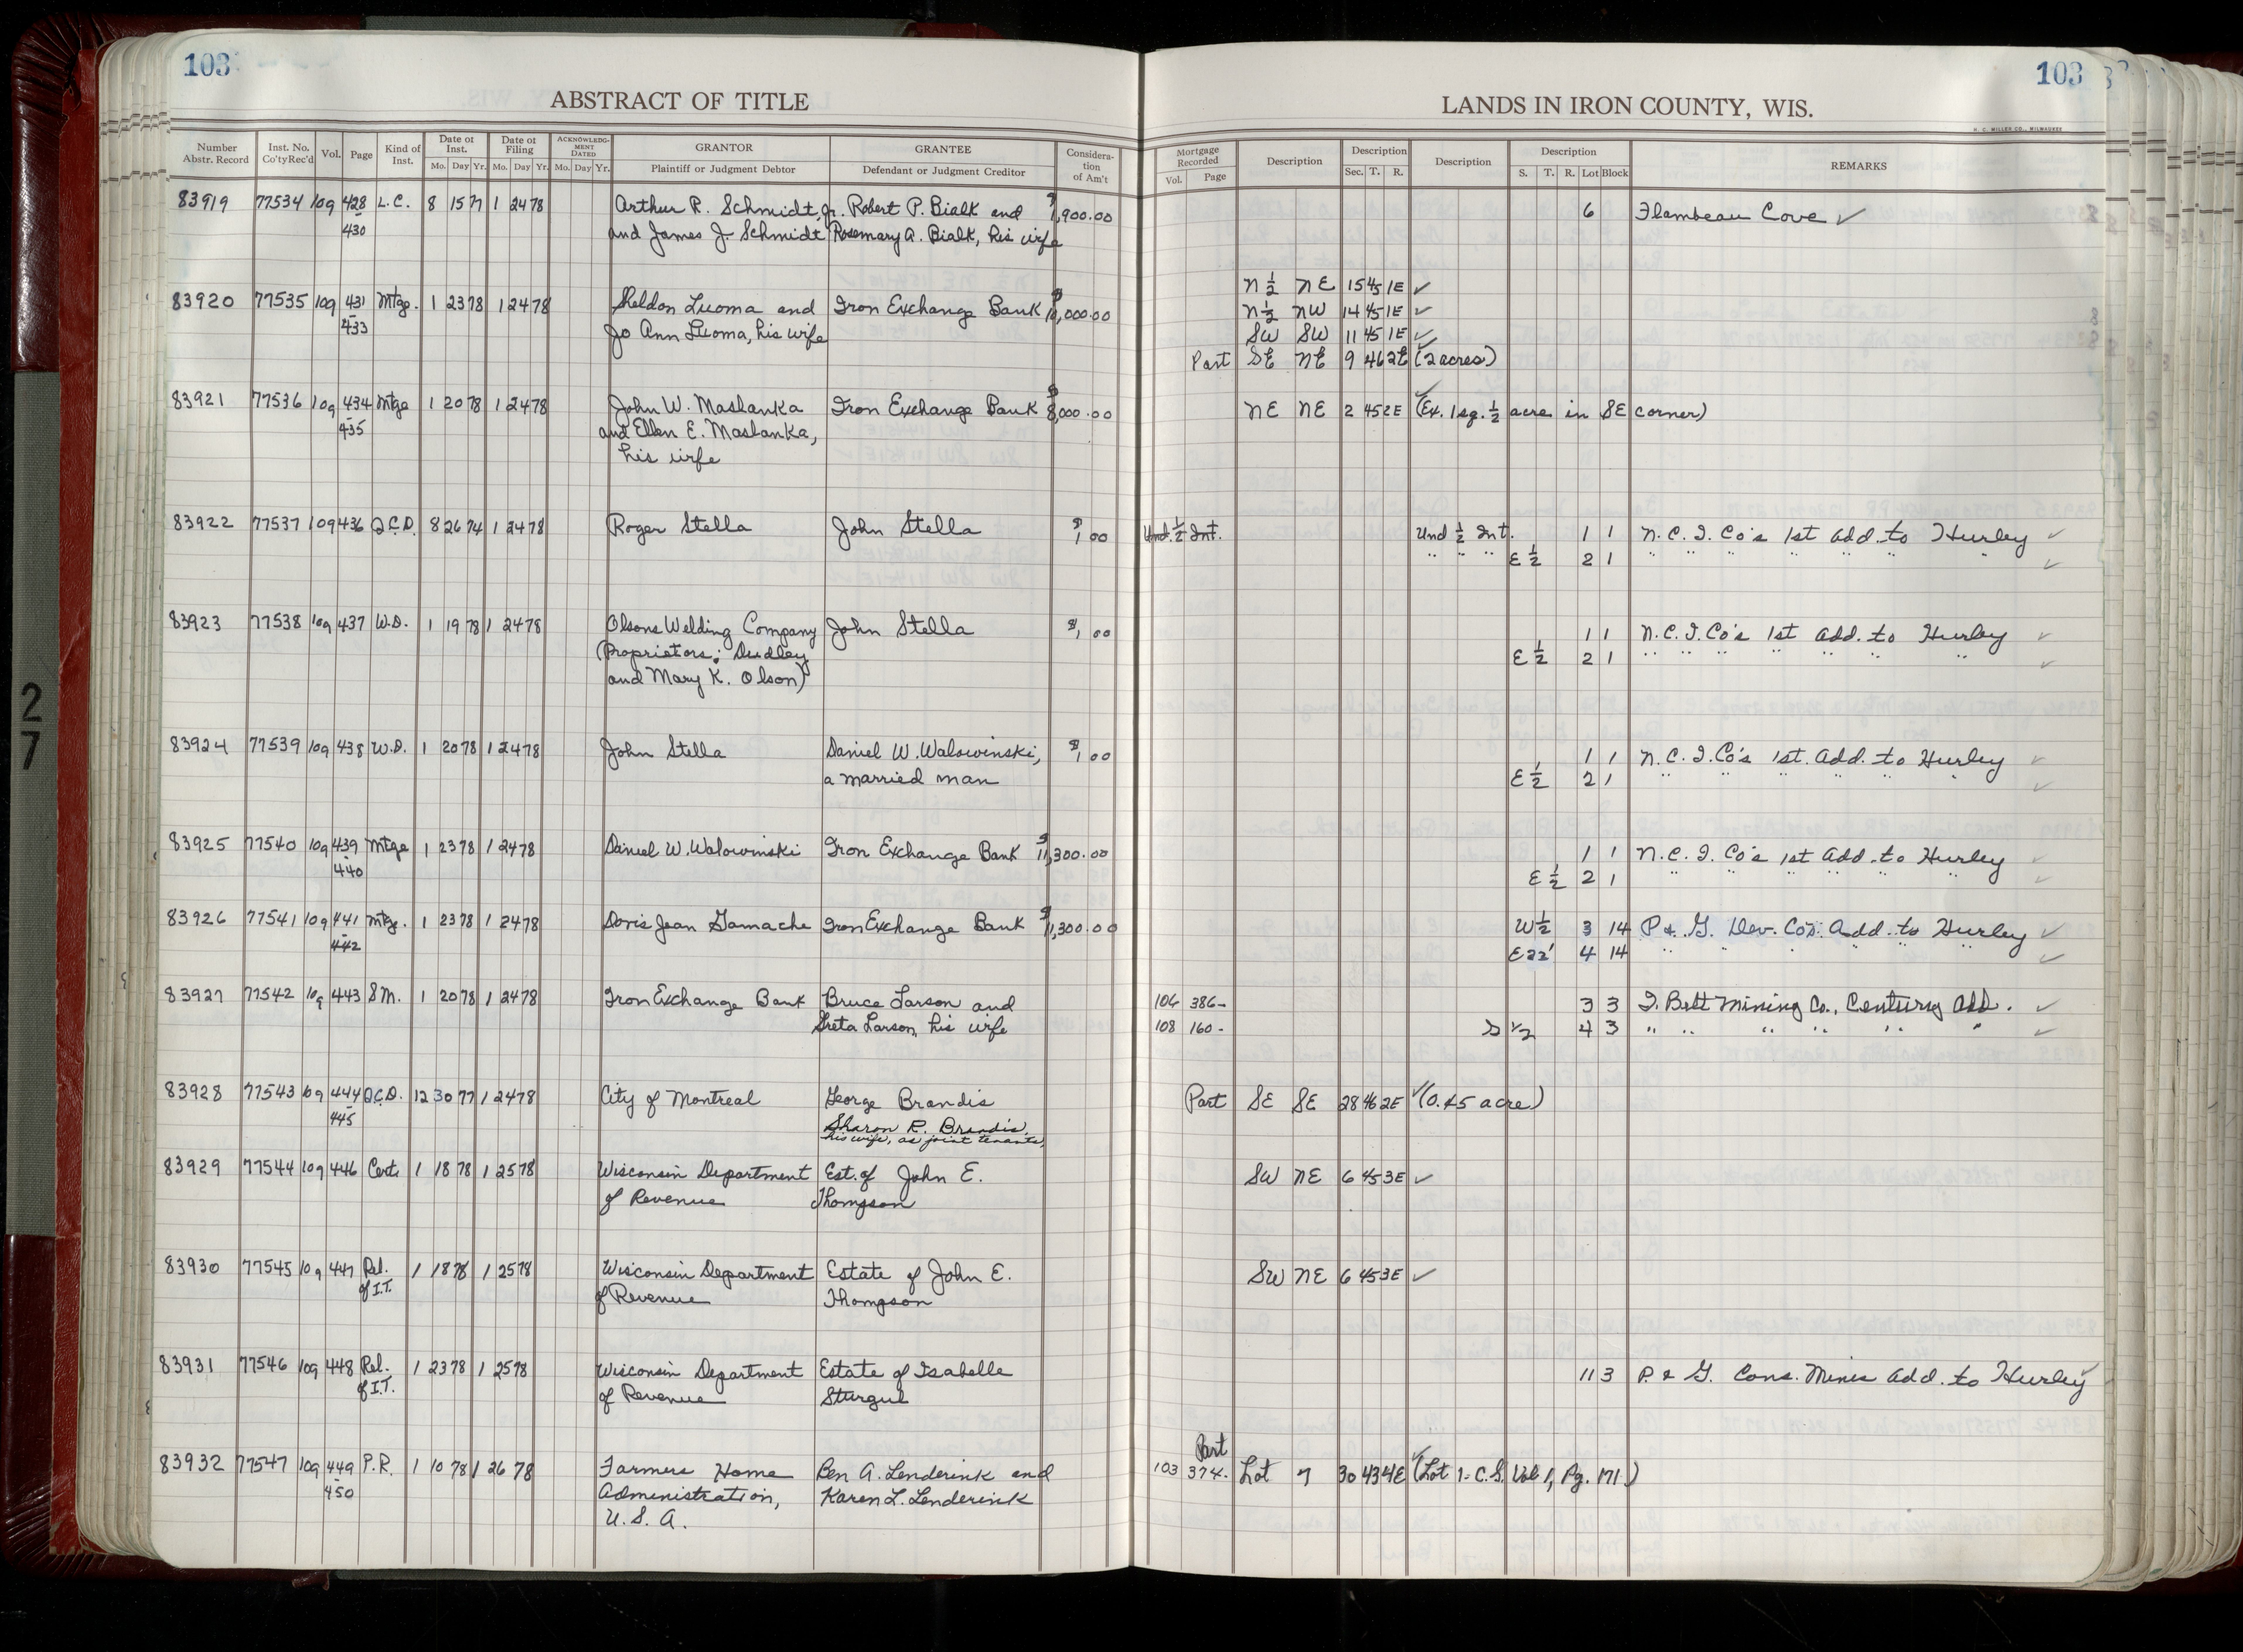 103
103
ABSTRACT OF TITLE
LANDS IN IRON COUNTY, WIS.
H. C. MILLER CO., MILWAUKEE
Number Abstr. Record Inst. No. Co'ty Rec'd Vol. Page Kind of Inst. Date of Inst. Mo. Day Yr. Date of Filing Mo. Day Yr. ACKNOWLEDGMENT DATED Mo. Day Yr. GRANTOR Plaintiff or Judgment Debtor GRANTEE Defendant or Judgment Creditor Consideration of Am't
Mortgage Recorded Vol. Page Description Description Sec. T. R. Description Description S. T. R. Lot Block REMARKS
83919 77534 109 428 L.C. 8 15 77 1 24 78 Arthur R. Schmidt, Jr. Robert P. Bialk and $ 1,900.00 6 Flambeau Cove ✓
- 430 and James J. Schmidt Rosemary A. Bialk, his wife
N ½ NE 15 45 1E ✓
83920 77535 109 431 Mtge. 1 23 78 1 24 78 Sheldon Luoma and Iron Exchange Bank $ ,000.00 N ½ NW 14 45 1E ✓
- 433 Jo Ann Luoma, his wife SW SW 11 45 1E ✓
Part SE NE 9 46 2E (2 acres)
83921 77536 109 434 Mtge 1 20 78 1 24 78 John W. Maslanka Iron Exchange Bank $ 8,000.00 NE NE 2 45 2E (Ex. 1 sq. ½ acre in SE corner)
- 435 and Ellen E. Maslanka,
his wife
83922 77537 109 436 Q.C.D. 8 26 74 1 24 78 Roger Stella John Stella $ 1 00 Und. ½ Int. Und ½ Int. 1 1 N.C.I. Co's 1st Add. to Hurley ✓
" " " E ½ 2 1 " " " " " " " ✓
83923 77538 109 437 W.D. 1 19 78 1 24 78 Olsons Welding Company John Stella $ 1 00 1 1 N.C.I. Co's 1st Add. to Hurley ✓
(Proprietors: Dudley E ½ 2 1 " " " " " " " ✓
and Mary K. Olson)
83924 77539 109 438 W.D. 1 20 78 1 24 78 John Stella Daniel W. Walowinski, $ 1 00 1 1 N.C.I. Co's 1st. Add. to Hurley ✓
a married man E ½ 2 1 " " " " " " ✓
83925 77540 109 439 Mtge 1 23 78 1 24 78 Daniel W. Walowinski Iron Exchange Bank $ 11,300.00 1 1 N.C.I. Co's 1st Add. to Hurley ✓
- 440 E ½ 2 1 " " " " " " ✓
83926 77541 109 441 Mtge. 1 23 78 1 24 78 Doris Jean Gamache Iron Exchange Bank $ 11,300.00 W ½ 3 14 P. & G. Dev. Co's. Add. to Hurley ✓
- 442 E 22' 4 14 " " " " " " ✓
83927 77542 109 443 S.M. 1 20 78 1 24 78 Iron Exchange Bank Bruce Larson and 106 386- 3 3 I. Belt Mining Co., Century Add. ✓
Greta Larson, his wife 108 160- S ½ 4 3 " " " " " " ✓
83928 77543 109 444 Q.C.D. 12 30 77 1 24 78 City of Montreal George Brandis Part SE SE 28 46 2E ✓ (0.45 acre)
- 445 Sharon R. Brandis,
his wife, as joint tenants,
83929 77544 109 446 Cert. 1 18 78 1 25 78 Wisconsin Department Est. of John E. SW NE 6 45 3E ✓
of Revenue Thompson
83930 77545 109 447 Rel. 1 18 78 1 25 78 Wisconsin Department Estate of John E. SW NE 6 45 3E ✓
of I.T. of Revenue Thompson
83931 77546 109 448 Rel. 1 23 78 1 25 78 Wisconsin Department Estate of Isabelle 11 3 P. & G. Cons. Mines Add. to Hurley ✓
of I.T. of Revenue Sturgul
Part
83932 77547 109 449 P.R. 1 10 78 1 26 78 Farmers Home Ben A. Lenderink and 103 374. Lot 7 30 43 4E ✓ (Lot 1- C.S. Vol 1, Pg. 171)
- 450 Administration, Karen L. Lenderink
U.S.A.
27